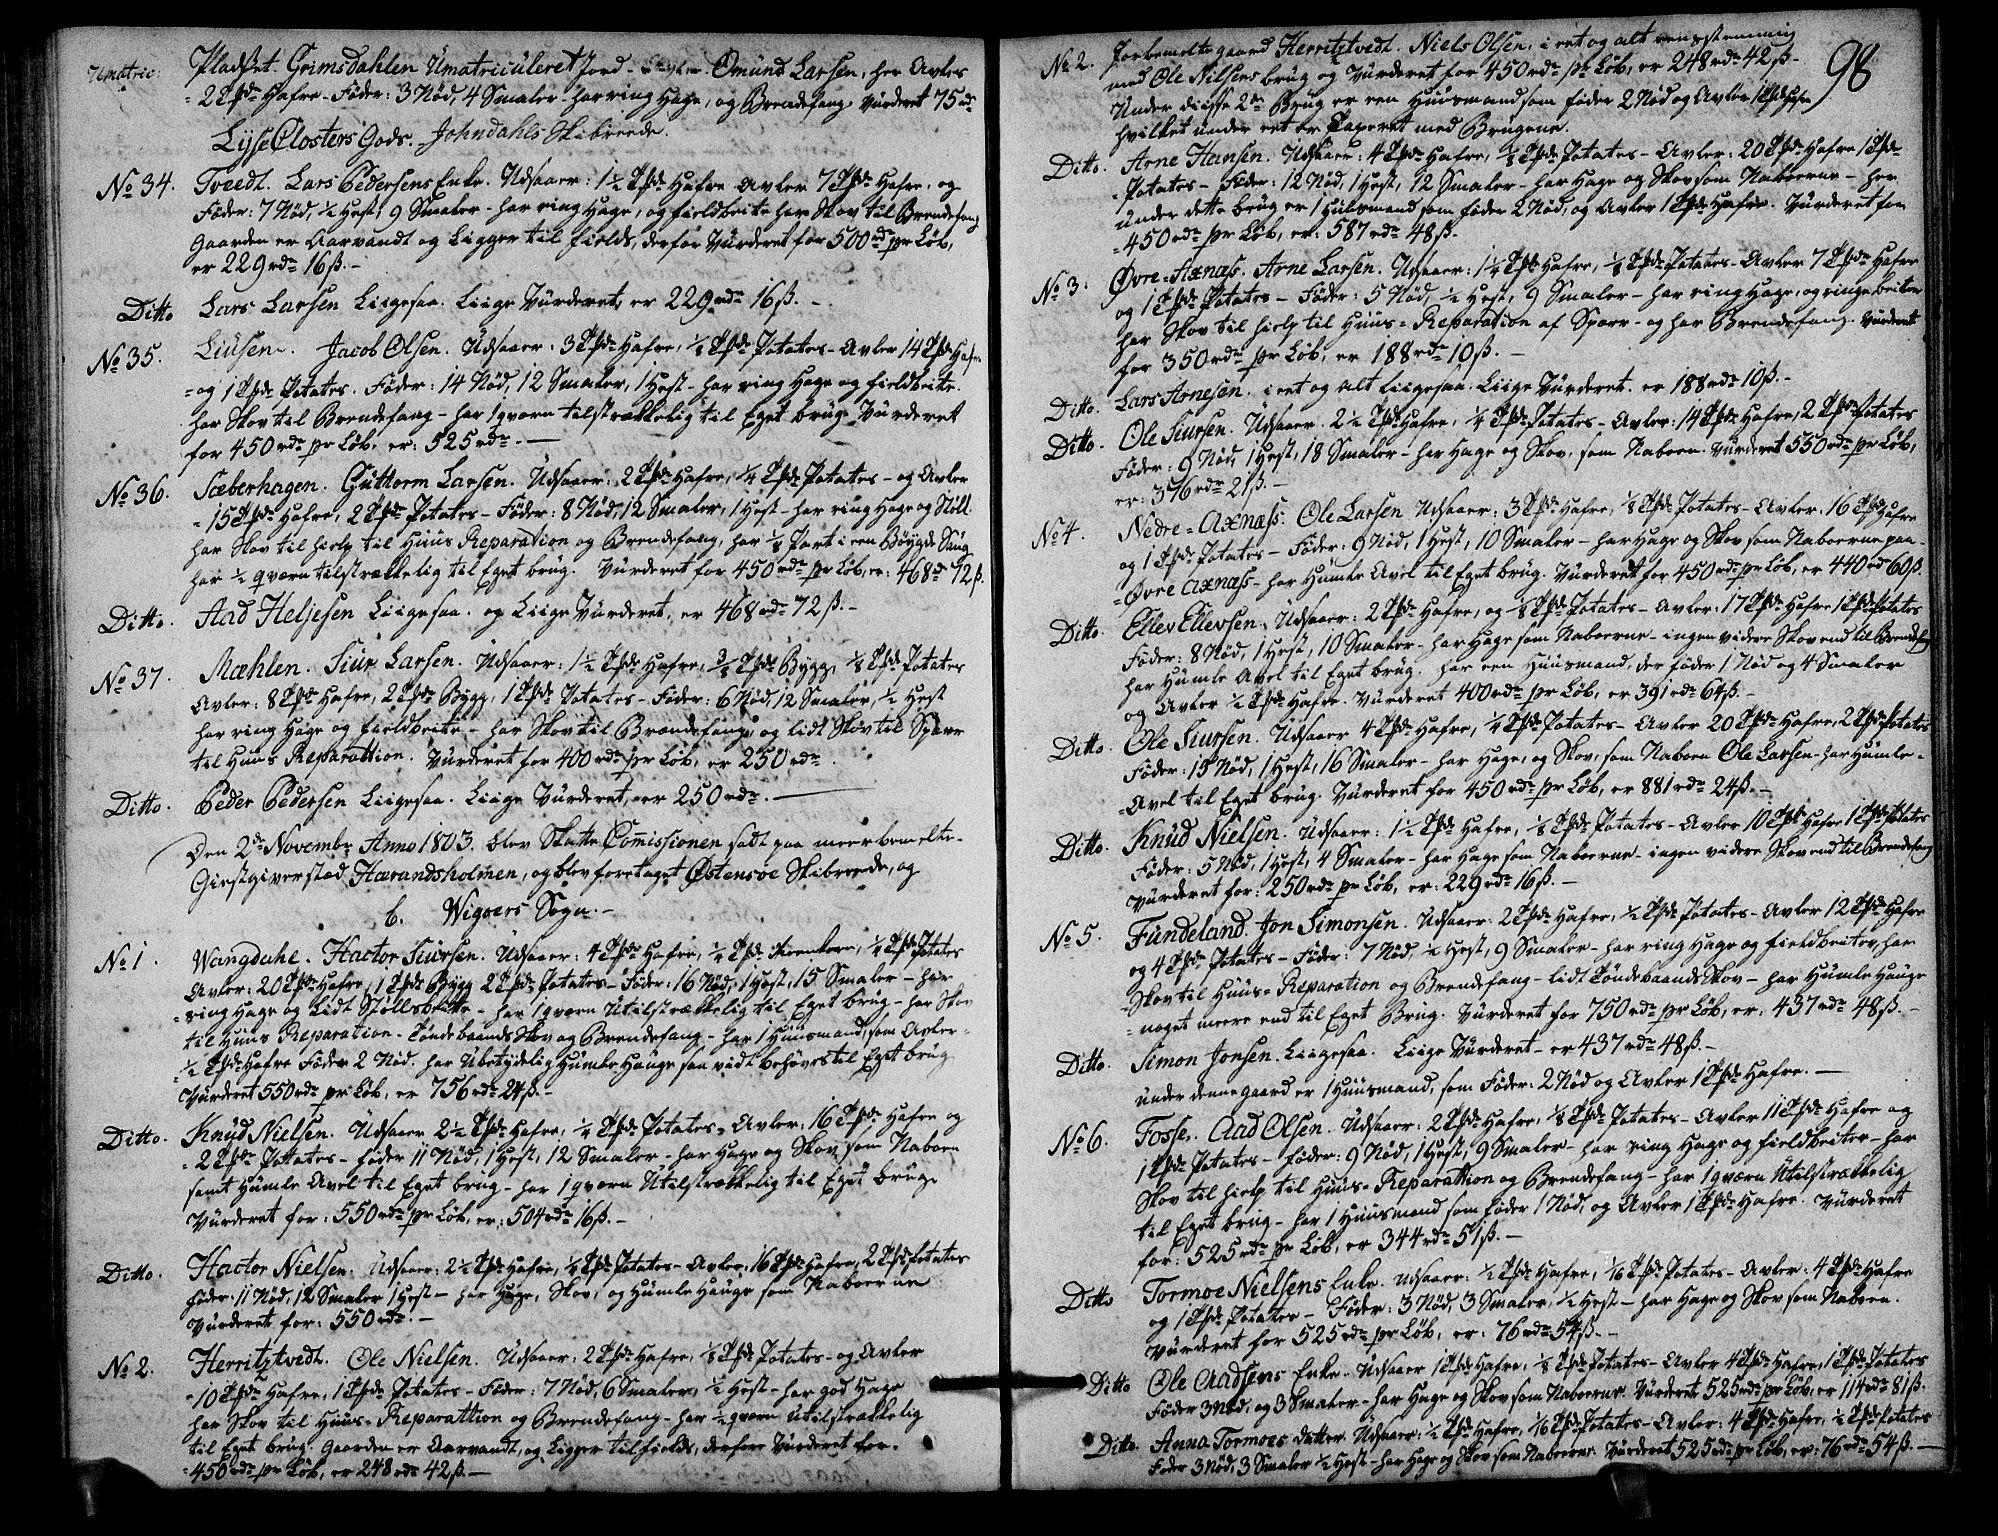 Umatric: Pladset Grimsdahlen Umatriculeret Jord - Omund Larsen, her Avles
2 Tpde Hafre - Føder: 3 Nød, 4 Smaler - har ring Hage, og Brendefang. Vurderet 75 rd
Lysse Closters Gods. Johndahls Skibreede.
No 34. Tvedt. Lars Pedersens Enke. Udsaaer: 1 1/2 Tpde Hafre Avler 7 Tpde Hafre, og
Føder: 7 Nød, 1/2 Hest, 9 Smaler - har ring Hage, og fieldbeite har Skov til Brendefang
Gaarden er Aarvandt og Ligger til fields, derfor Vurderet for 500 rdr pr Løb,
er 229 rdr 16 ß. -
Ditto Lars Larsen Liigesaa. Liige Vurderet, er 229 rdr 16 ß. -
No 35. Liusen. Jacob Olsen. Udsaaer: 3 Tpde Hafre, 1/8 Tpde Potates - Avler 14 Tpde Hafre
og 1 Tpde Potates. Føder: 14 Nød, 12 Smaler, 1 Hest - har ring Hage og fieldbeite
har Skov til Brendefang - har 1 qværn tilstrækkelig til Eget brug. Vurderet
for 450 rdr pr Løb, er: 525 rdr. -
No 36. Sæberhagen. Guttorm Larsen. Udsaaer: 2 Tpde Hafre, 1/4 Tpde Potates - og Avler
15 Tpde Hafre, 2 Tpde Potates - Føder: 8 Nød, 12 Smaler, 1 Hest - har ring Hage og Støll
har Skov til hielp til Huus Reparation og Brendefang, har 1/8 Part i een Bøygde Saug
har 1/2 qværn tilstrækkelig til Eget brug. Vurderet for 450 rdr pr Løb, er: 468 rd 72 ß.
Ditto. Aad Heljesen Liigesaa. og Liige Vurderet, er 468 rdr 72 ß. -
No 37. Mæhlen. Siur Larsen. Udsaaer: 1 1/2 Tpde Hafre, 3/8 Tpde Bygg, 1/8 Tpde Potates
Avler: 8 Tpde Hafre, 2 Tpde Bygg, 1 Tpde Potates - Føder: 6 Nød, 12 Smaler, 1/2 Hest
har ring Hage og fieldbeite - har Skov til Brændefang, og lidt Skov til Spære
til Huus Reparattion. Vurderet for 400 rdr pr Løb, er 250 rdr.
Ditto. Peder Pedersen Liigesaa. Liige Vurderet, er 250 rdr.
Den 2de Novembr Anno 1803. blev Skatte Comissionen sadt paa meerbemelte
Giestgiverstæd Hærandsholmen, og blev foretaget Østensøe Skibreede, og
6. Wigøers Sogn. -
No 1. Wangdahl. Hactor Siursen. Udsaaer: 4 Tpde Hafre, 1/4 Tpde Kornkorn, 1/4 Tpde Potates
Avler: 20 Tpde Hafre, 1 Tpde Bygg 2 Tpde Potates - Føder: 16 Nød, 1 Hest, 15 Smaler - har
ring Hage og Lidt Støllsbeite - har 1 qværn Utilstrækkelig til Eget brug - har Skov
til Huus Reparation - Tøndebaands Skov og Brendefang - har 1 Huusmand, som Avler
1/2 Tpde Hafre Føder 2 Nød. har Ubetydelig Humle Hauge saa vidt behøves til Eget brug
Vurderet 550 rdr pr Løb, er 756 rdr 24 ß. -
Ditto. Knud Nielsen. Udsaaer 2 1/2 Tpde Hafre, 1/4 Tpde Potates - Avler, 16 Tpde Hafre og
2 Tpde Pottates - føder 11 Nød, 1 Hest, 12 Smaler - har Hage og Skov som Naboen
samt Humle Avel til Eget brug - har 1 qværn Utilstrækkelig til Eget brug.
Vurderet for: 550 rdr pr Løb, er: 504 rdr 16 ß. -
Ditto. Hactor Nielsen. Udsaaer: 2 1/2 Tpde Hafre, 1/4 Tpde Potates - Avler, 16 Tpde Hafre, 2 Tpde Potates
Føder: 11 Nød, 12 Smaler 1 Hest - har Hage, Skov, og Humle Hauge som Naboerne
Vurderet for: 550 rdr. -
No 2. Herritztvedt. Ole Nielsen. Udsaaer: 2 Tpde Hafre, 1/8 Tpde Potates - og Avler
10 Tpde Hafre, 1 Tpde Potates - Føder: 7 Nød, 6 Smaler, 1/2 Hest - har god Hage
har Skov til Huus Reparattion og Brendefang - har 1/2 qværn Utilstrækkelig
til Eget brug. Gaarden er Aarvandt, og Ligger til fields, derfore Vurderet for
450 rdr pr Løb, er 248 rdr 42 ß. -
98
No 2. Forbemelte gaard Herritztvedt. Niels Olsen, i eet og alt eensstemmig
med Ole Nilsens brug og Vurderet for 450 rdr pr Løb, er 248 rdr 42 ß -
Under disse 2de Brug er een Huusmand som føder 2 Nød og Avler 1 Tpde Hafre
hvilket under eet er Taxeret med Brugene.
Ditto. Arne Hansen. Udsaaer: 4 Tpde Hafre, 1/8 Tpde Potates - Avler: 20 Tpde Hafre 1 Tpde
Potates - Føder: 12 Nød, 1 Hest, 12 Smaler - har Hage og Skov som Naboerne - her
under dette brug er 1 Huusmand som føder 2 Nød, og Avler 1 Tpde Hafre. Vurderet for
450 rdr pr Løb, er: 587 rdr 48 ß.
No 3. Øvre-Axnæss. Arne Larsen. Udsaaer: 1 1/4 Tpde Hafre, 1/8 Tpde Potates - Avler 7 Tpde Hafre
og 1 Tpde Potates - Føder: 5 Nød, 1/2 Hest, 9 Smaler - har ring Hage, og ringe beiter
har Skov til hielp til Huus = Reparation af Spærr - og har Brendefang. Vurderet
for 350 rdr pr Løb, er 188 rdr 10 ß. -
Ditto. Lars Arnesen. i eet og alt Liigesaa. Liige Vurderet. er 188 rdr 10 ß. -
Ditto. Ole Siursen. Udsaaer. 2 1/2 Tpde Hafre, 1/4 Tpde Potates - Avler: 14 Tpde Hafre, 2 Tpde Potates
Føder: 9 Nød, 1 Hest, 18 Smaler - har Hage og Skov, som Naboen. Vurderet 550 rdr pr Løb,
er: 376 rdr 21 ß. -
No 4. Nedre = Axnæss. Ole Larsen Udsaaer: 3 Tpde Hafre, 1/8 Tpde Potates - Avler: 16 Tpde Hafre
og 1 Tpde Potates - Føder: 9 Nød, 1 Hest, 10 Smaler - har Hage og Skov som Naboerne paa
Øvre Axnæss - har Humle Avel til Eget brug. Vurderet for 450 rdr pr Løb, er 440 rd 60 ß.
Ditto. Ellev Ellevsen. Udsaaer: 2 Tpde Hafre, og 1/8 Tpde Potates - Avler: 17 Tpde Hafre 1 Tpde Potates
Føder: 8 Nød, 1 Hest, 10 Smaler - har Hage som Naboerne - ingen videre Skov end til Brendefang
har Humle Avel til Eget brug. har een Huusmand, der føder 1 Nød og 4 Smaler
og Avler 1/2 Tpde Hafre. Vurderet 400 rdr pr Løb, er 391 rdr 64 ß. -
Ditto. Ole Siursen. Udsaaer 4 Tpde Hafre, 1/4 Tpde Potates - Avler 20 Tpde Hafre, 2 Tpde Potates
Føder: 15 Nød, 1 Hest, 16 Smaler - har Hage, og Skov, som Naboen Ole Larsen - har Humle
Avel til Eget brug. Vurderet for 450 rdr pr Løb, er 881 rdr 24 ß. -
Ditto. Knud Nielsen. Udsaaer: 1 1/2 Tpde Hafre, 1/8 Tpde Potates - Avler 10 Tpde Hafre 1 Tpde Potates
Føder: 5 Nød, 1 Hest, 4 Smaler - har Hage som Naboerne - ingen videre Skov end til Brendefang
Vurderet for: 250 rdr pr Løb, er: 229 rdr 16 ß. -
No 5. Fundeland. Jon Simonsen. Udsaaer: 2 Tpde Hafre, 1/2 Tpde Potates - Avler 12 Tpde Hafre
og 4 Tpde Potates - Føder: 7 Nød, 1/2 Hest, 9 Smaler - har ring Hage og fieldbeiter, har
Skov til Huus = Reparation og Brendefang - lidt Tøndebaands Skov - har Humle Hauge
noget meere end til Eget Brug. Vurderet for 750 rdr pr Løb, er: 437 rdr 48 ß. -
Ditto. Simon Jonsen. Liigesaa. Liige Vurderet - er 437 rdr 48 ß. -
under denne gaard er 1 Huusmand, som Føder: 2 Nød og Avler 1 Tpde Hafre. -
No 6. Fosse. Aad Olsen. Udsaaer: 2 Tpde Hafre, 1/8 Tpde Potates - Avler 11 Tpde Hafre og
1 Tpde Potates - føder: 9 Nød, 1 Hest, 9 Smaler - har ring Hage og fieldbeiter - har
Skov til hielp til Huus = Reparattion og Brendefang - har 1 qværn Utilstrækkelig
til Eget brug - har 1 Huusmand som føder 1 Nød, og Avler 1 Tpde Hafre. Vurderet
for: 525 rdr pr Løb, er 344 rdr 51 ß. -
Ditto Tormoe Nielsens Enke. Udsaaer: 1/2 Tpde Hafre, 1/16 Tpde Potates - Avler: 4 Tpde Hafre
og 1 Tpde Potates - Føder: 3 Nød, 3 Smaler, 1/2 Hest - har Hage og Skov som Naboen.
Vurderet for 525 rdr pr Løb, er: 76 rdr 54 ß. -
Ditto Ole Aadsens Enke. Udsaaer 1 Tpde Hafre, 1/8 Tpde Potates - Avler 4 Tpde Hafre, 1 Tpde Potates
Føder 3 Nød, og 3 Smaler - har Hage og Skov som Naboerne. Vurderet 525 rdr pr Løb, er 114 rdr 81 ß.
Ditto. Anna Tormoes datter. Udsaaer: 1/2 Tpde Hafre, 1/16 Tpde Potates - Avler: 4 Tpde Hafre, 1/2 Tpde Potates
Føder 3 Nød, 3 Smaler 1/2 Hest - har Hage og Skov som Naboerne. Vurderet 525 rdr pr Løb, er: 76 rdr 54 ß. -